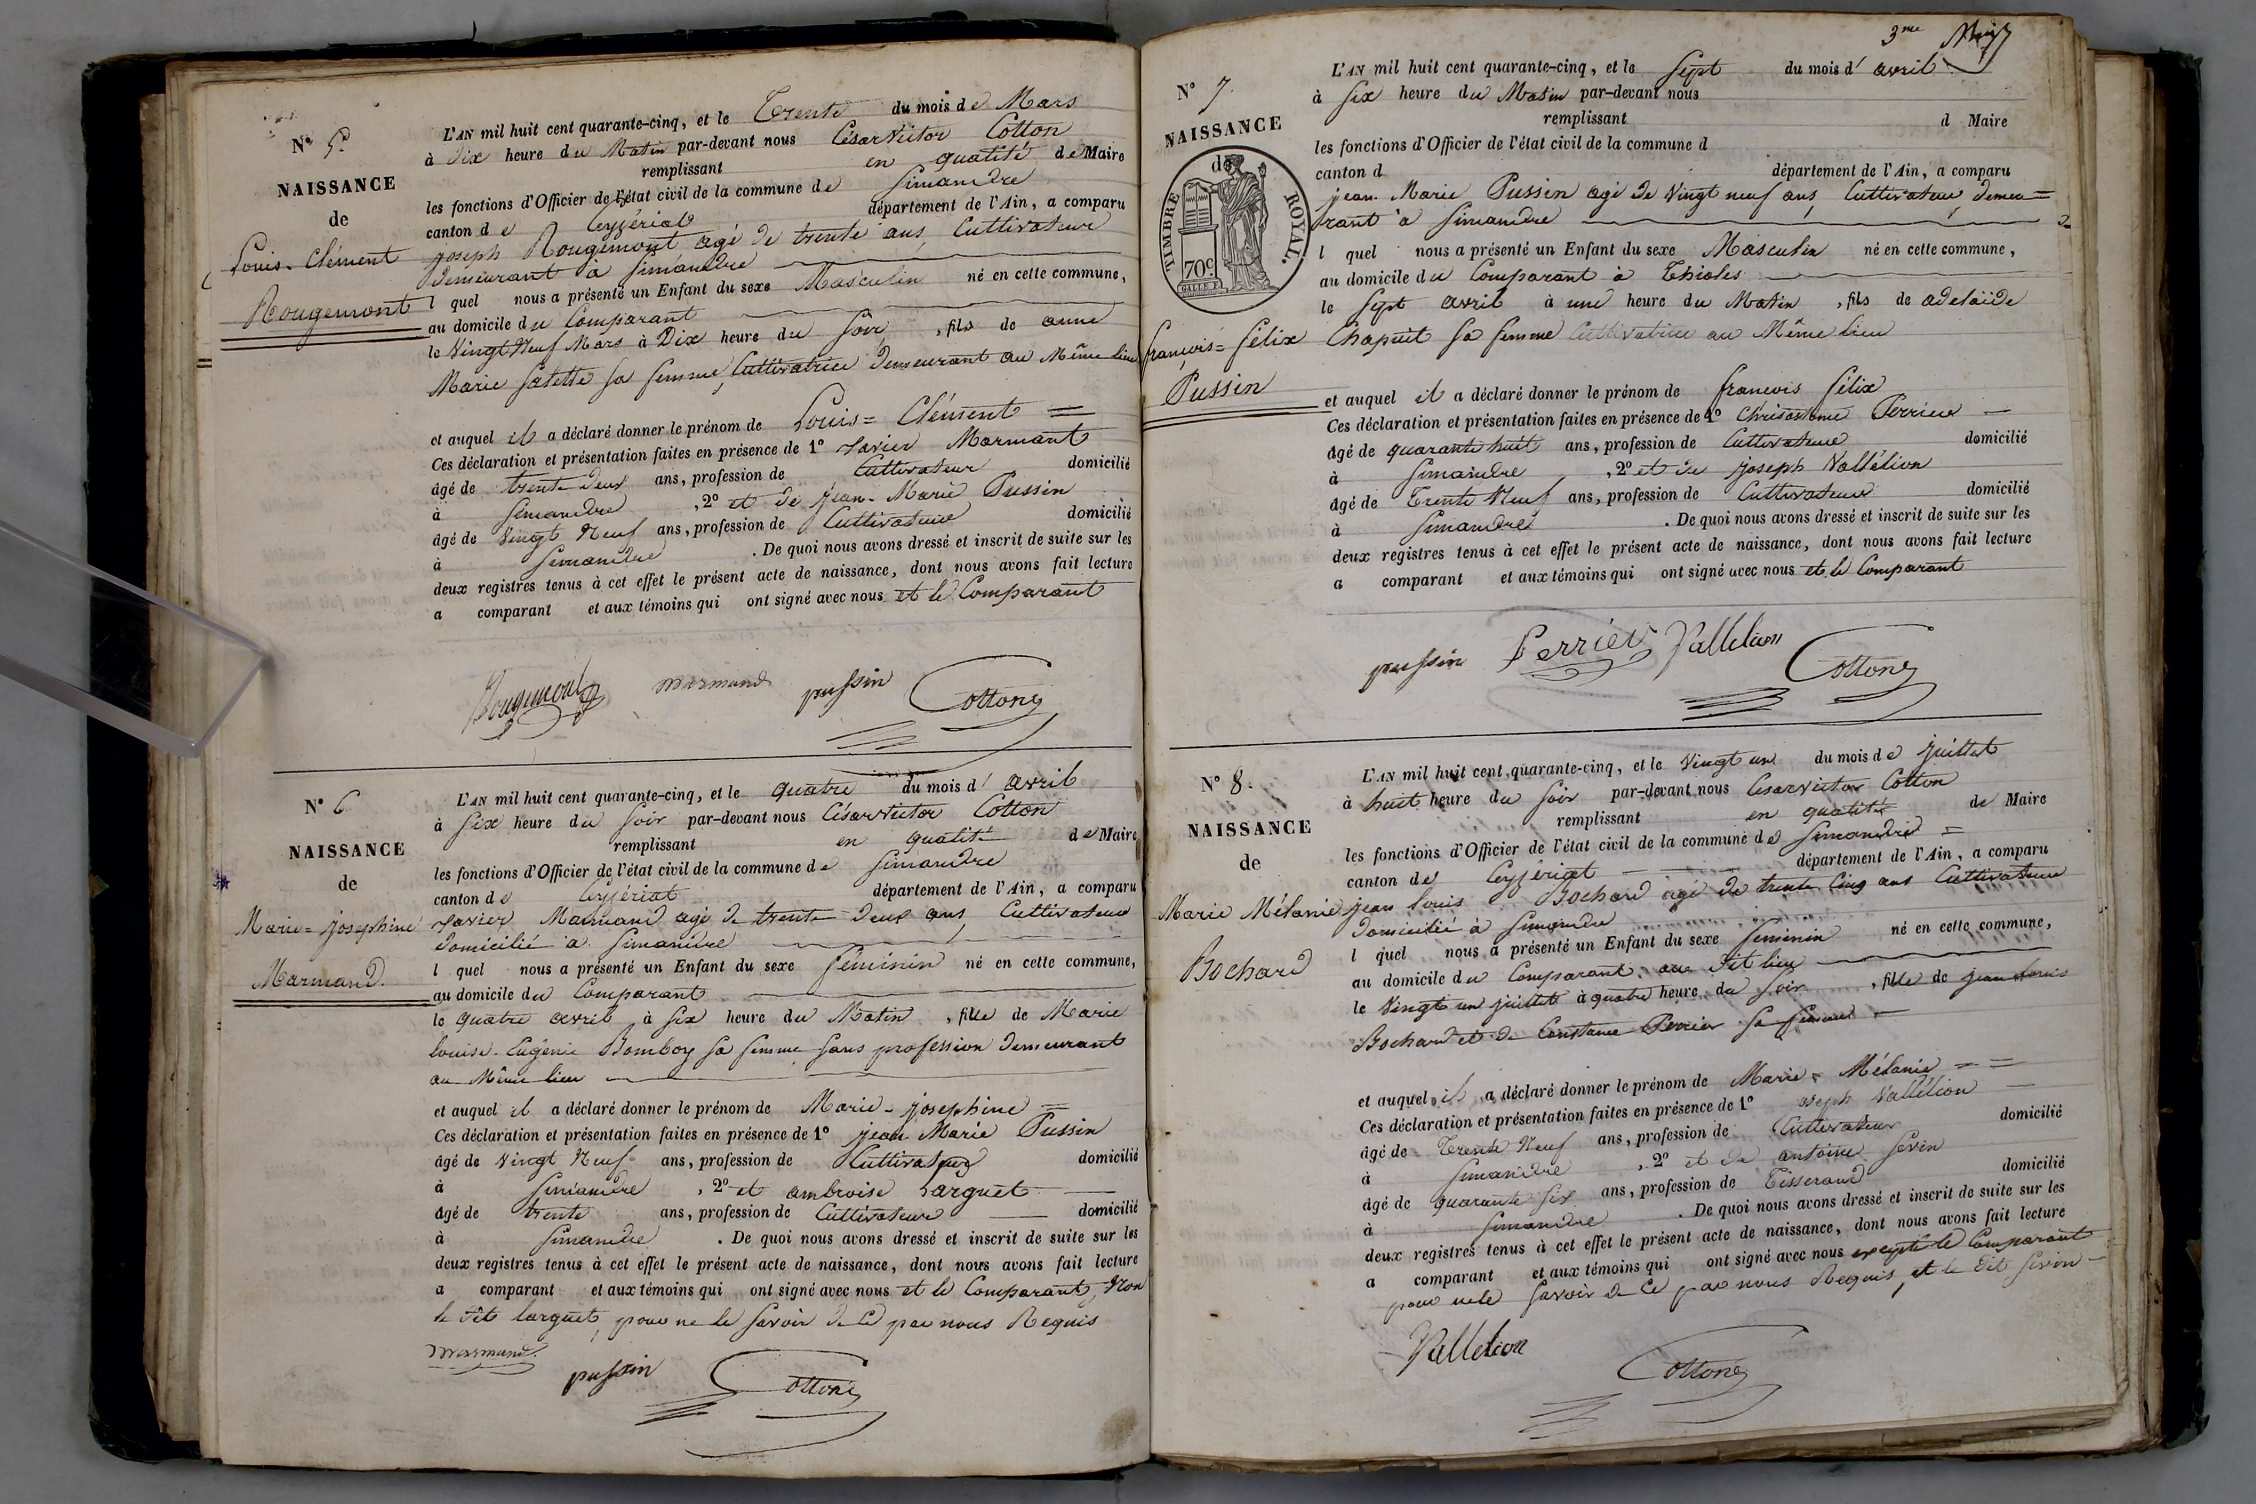 N° 5.
NAISSANCE
de
Louis-Clément
Rougemont
L'AN mil huit cent quarante-cinq, et le Trente du mois de Mars
à Dix heure du Matin par-devant nous César Victor Cotton
remplissant en qualité de Maire
les fonctions d'Officier de l'état civil de la commune de Simandre
canton de Ceyzériat département de l'Ain, a comparu
joseph Rougemont agé de trente ans, Cultivateur
demeurant à Simandre
l quel nous a présenté un Enfant du sexe Masculin né en cette commune,
au domicile du Comparant
le Vingt Neuf Mars à Dix heure du Soir, fils de anne
Marie Salette Sa femme, Cultivatrice demeurant au Même lieu
et auquel il a déclaré donner le prénom de Louis = Clément =
Ces déclaration et présentation faites en présence de 1° Xavier Marmant
âgé de trente deux ans, profession de Cultivateur domicilié
à Simandre, 2° et de jean-Marie Pussin
âgé de Vingt Neuf ans, profession de Cultivateur domicilié
à Simandre. De quoi nous avons dressé et inscrit de suite sur les
deux registres tenus à cet effet le présent acte de naissance, dont nous avons fait lecture
a comparant et aux témoins qui ont signé avec nous et le Comparant
Rougemont marmand pussin Cotton
N° 6
NAISSANCE
de
Marie=josephine
Marmand.
L'AN mil huit cent quarante-cinq, et le quatre du mois d' avril
à Six heure du Soir par-devant nous César Victor Cotton
remplissant en qualité de Maire
les fonctions d'Officier de l'état civil de la commune de Simandre
canton de Ceyzériat département de l'Ain, a comparu
Xavier Marmand agé de trente deux ans, Cultivateur
domicilié à Simandre
l quel nous a présenté un Enfant du sexe féminin né en cette commune,
au domicile du Comparant
le quatre avril à Six heure du Matin, fille de Marie
louise-Eugénie Bomboy Sa femme Sans profession demeurant
au Même lieu
et auquel il a déclaré donner le prénom de Marie-josephine =
Ces déclaration et présentation faites en présence de 1° jean Marie Pussin
âgé de Vingt Neuf ans, profession de Cultivateur domicilié
à Simandre, 2° et ambroise Larguet
âgé de trente ans, profession de Cultivateur domicilié
à Simandre. De quoi nous avons dressé et inscrit de suite sur les
deux registres tenus à cet effet le présent acte de naissance, dont nous avons fait lecture
a comparant et aux témoins qui ont signé avec nous et le Comparant, Non
le dit larguet, pour ne le Savoir de Ce par nous Requis
marmand. pussin Cotton
3me
N° 7.
NAISSANCE
de
TIMBRE ROYAL.
70c
françois=félix
Pussin
L'AN mil huit cent quarante-cinq, et le Sept du mois d' avril
à Six heure du Matin par-devant nous
remplissant d Maire
les fonctions d'Officier de l'état civil de la commune d
canton d département de l'Ain, a comparu
jean Marie Pussin agé de Vingt neuf ans, Cultivateur, demeu=
rant à Simandre
l quel nous a présenté un Enfant du sexe Masculin né en cette commune,
au domicile du Comparant à Thioles
le Sept avril à une heure du Matin, fils de adelaïde
Chapuit Sa femme Cultivatrice au Même lieu
et auquel il a déclaré donner le prénom de francois félix
Ces déclaration et présentation faites en présence de 1° Chrisostome Perrier
âgé de quarante huit ans, profession de Cultivateur domicilié
à Simandre, 2° et de joseph Vallélion
âgé de Trente Neuf ans, profession de Cultivateur domicilié
à Simandre. De quoi nous avons dressé et inscrit de suite sur les
deux registres tenus à cet effet le présent acte de naissance, dont nous avons fait lecture
a comparant et aux témoins qui ont signé avec nous et le Comparant
pussin Perrier Vallelion Cotton
N° 8.
NAISSANCE
de
Marie Mélanie
Bochard
L'AN mil huit cent quarante-cinq, et le Vingt un du mois de juillet
à huit heure du Soir par-devant nous César Victor Cotton
remplissant en qualité de Maire
les fonctions d'Officier de l'état civil de la commune de Simandre =
canton de Ceyzériat département de l'Ain, a comparu
jean louis Bochard agé de trente Cinq ans Cultivateur
domicilié à Simandre
l quel nous a présenté un Enfant du sexe féminin né en cette commune,
au domicile du Comparant au dit lieu
le Vingt un juillet à quatre heure du Soir, fille de jean louis
Bochard et de Constance Perrier Sa femme
et auquel il a déclaré donner le prénom de Marie = Mélanie = =
Ces déclaration et présentation faites en présence de 1° joseph Vallélion
âgé de Trente Neuf ans, profession de Cultivateur domicilié
à Simandre, 2° et de antoine Sevin
âgé de quarante Six ans, profession de Tisserand domicilié
à Simandre. De quoi nous avons dressé et inscrit de suite sur les
deux registres tenus à cet effet le présent acte de naissance, dont nous avons fait lecture
a comparant et aux témoins qui ont signé avec nous excepté le Comparant
pour ne le Savoir de Ce par nous Requis, et le dit Sevin
Vallelion Cotton